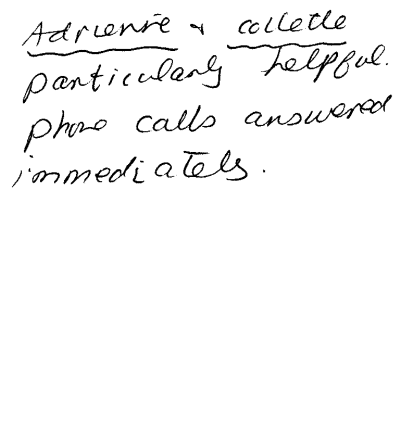 Adrienne & collette
particularly helpful.
phone calls answered
immediately.